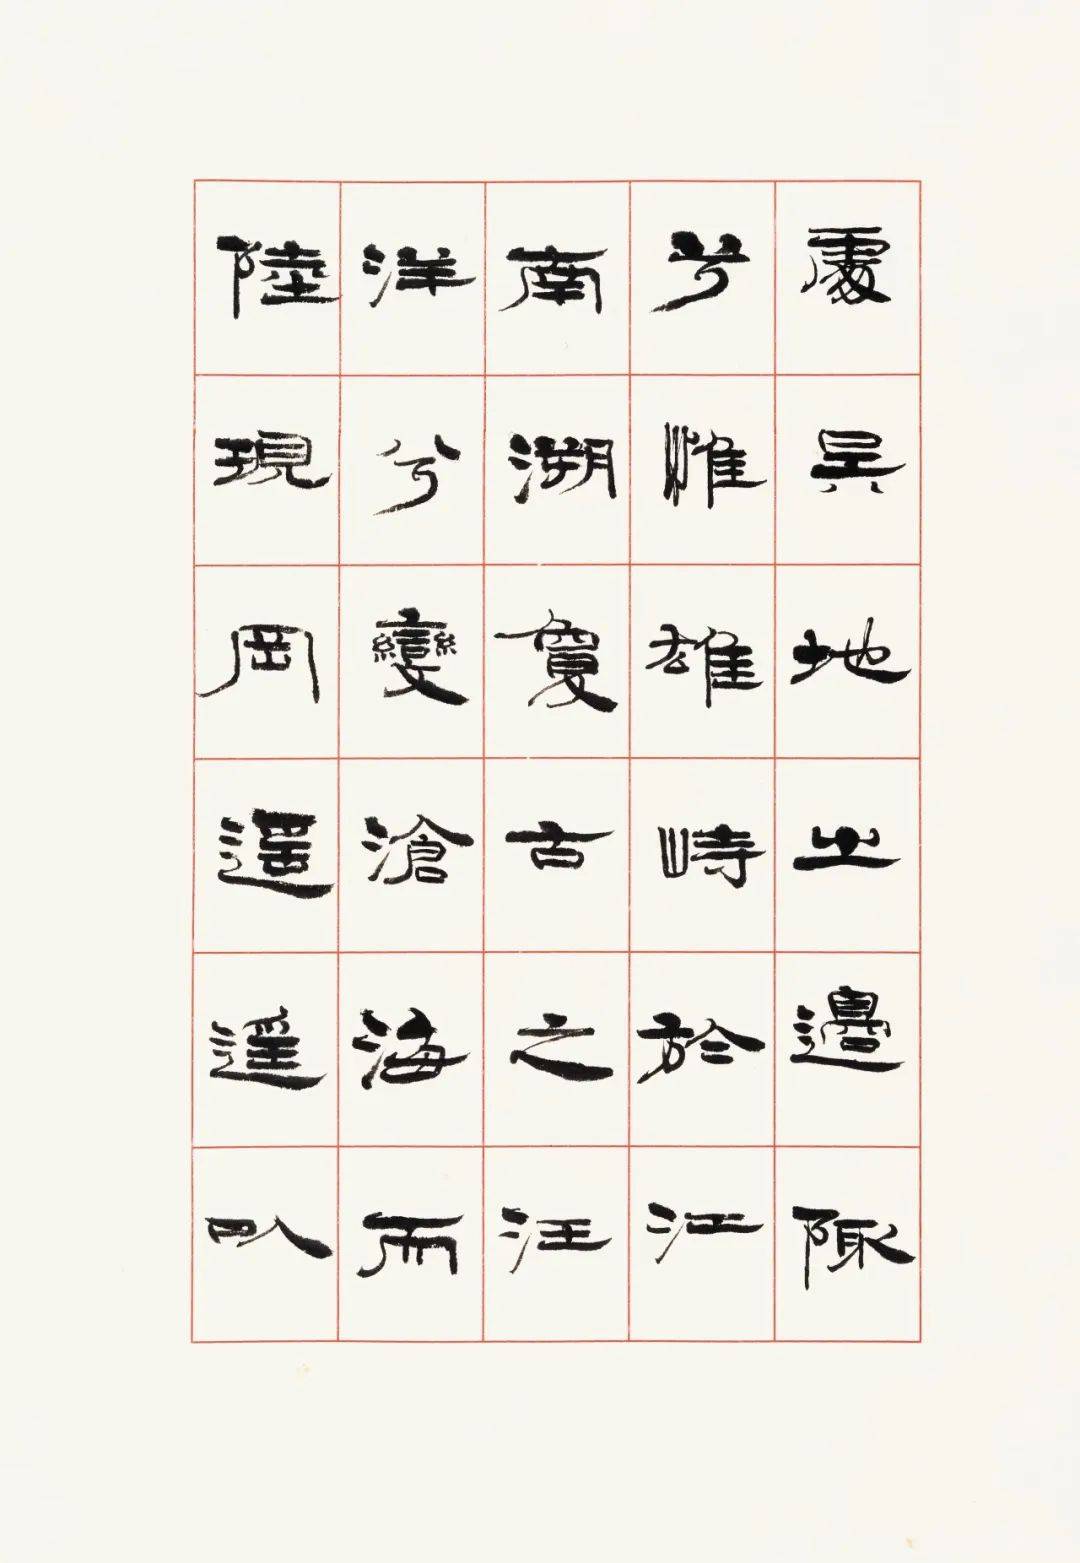 處吳地之邊陬
兮惟雄峙於江
南溯夐古之汪
洋兮變滄海而
陸現岡遥遥以